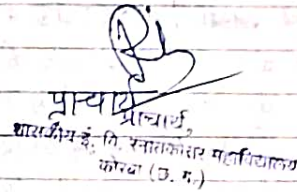 प्राचार्य
प्राचार्य,
शासकीय इं. वि. स्नातकोत्तर महाविद्यालय
कोरबा (छ. ग.)